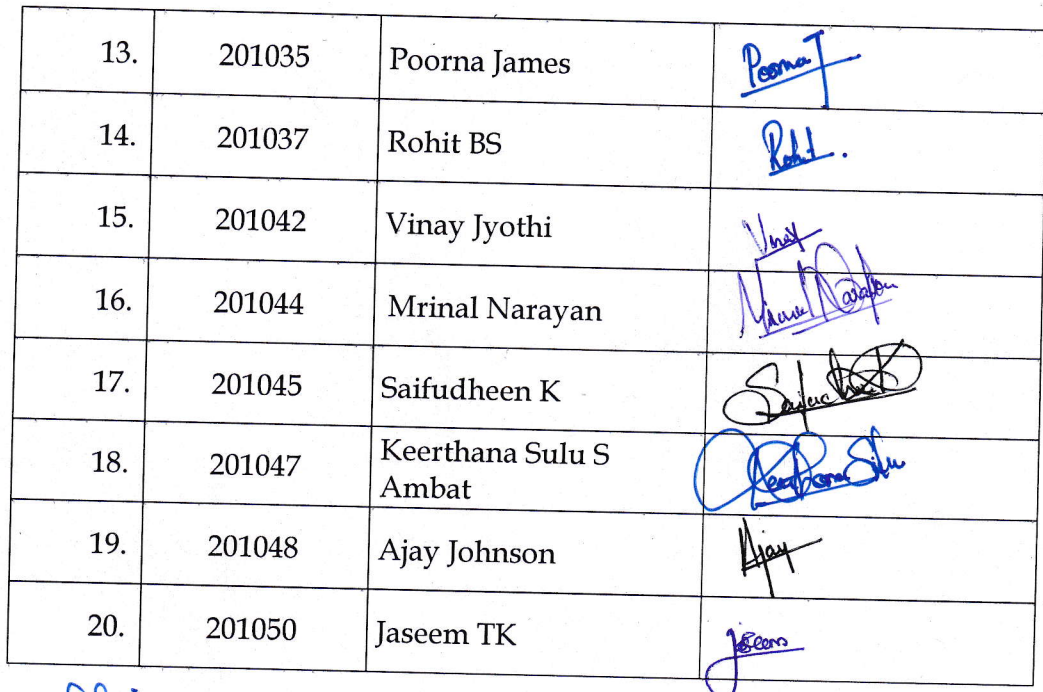 13. 201035 Poorna James Poorna J
14. 201037 Rohit BS Rohit.
15. 201042 Vinay Jyothi Vinay
16. 201044 Mrinal Narayan Mrinal Narayan
17. 201045 Saifudheen K Saifudheen K
18. 201047 Keerthana Sulu S
Ambat Keerthana Sulu
19. 201048 Ajay Johnson Ajay
20. 201050 Jaseem TK Jaseem